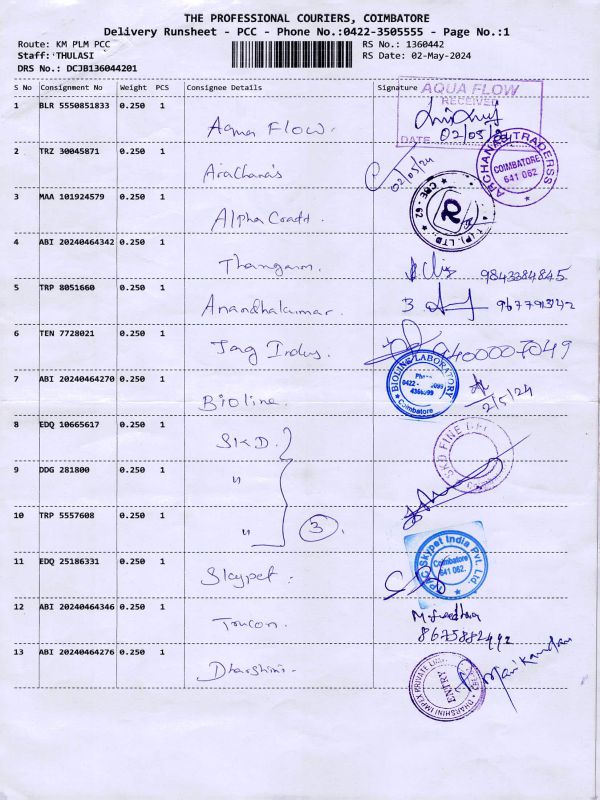 THE PROFESSIONAL COURIERS, COIMBATORE
Delivery Runsheet - PCC - Phone No.:0422-3505555 - Page No.:1
Route: KM PLM PCC
RS No.: 1360442
Staff: THULASI
RS Date: 02-May-2024
DRS No.: DCJB136044201
S No Consignment No Weight PCS Consignee Details Signature
1 BLR 5550851833 0.250 1 Aqua Flow.
AQUA FLOW
RECEIVED
DATE 02/05/24
2 TRZ 30045871 0.250 1 Arachana's
02/05/24
ARCHANA TRADERSS
COIMBATORE
641 062
3 MAA 101924579 0.250 1 Alpha Craft.
CBE - 62
R
(P). LTD.
4 ABI 20240464342 0.250 1 Thangam.
9843384845
5 TRP 8051660 0.250 1 Anandhakumar.
6 TEN 7728021 0.250 1 Jag Indus.
7 ABI 20240464270 0.250 1 Bioline.
BIOLINE LABORATORY
Coimbatore
2/5/24
8 EDQ 10665617 0.250 1 SKD.
SKD FINE
9 DDG 281800 0.250 1 "
10 TRP 5557608 0.250 1 "
3
11 EDQ 25186331 0.250 1 Skypet.
Skypet India Pvt. Ltd.
Coimbatore
641 062.
12 ABI 20240464346 0.250 1 Trucon.
13 ABI 20240464276 0.250 1 Dharshini.
DHARSHINI IMPEX PRIVATE
ENTRY
Manikandan